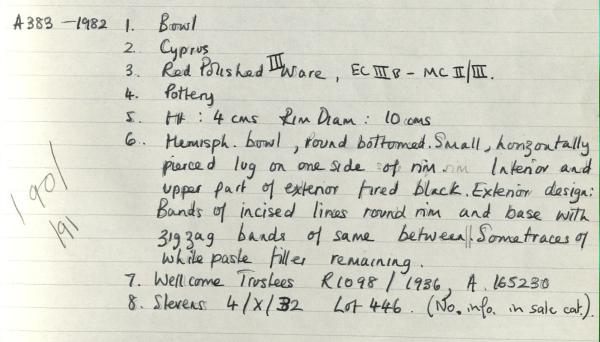 A383 - 1982 1. Bowl
2. Cyprus
3. Red Polished III Ware, EC III B - MC II/III.
4. Pottery
5. Ht : 4 cms Rim Diam : 10 cms
6. Hemisph. bowl, round bottomed. Small, horizontally
pierced lug on one side of rim. Interior and
upper part of exterior fired black. Exterior design:
Bands of incised lines round rim and base with
zigzag bands of same between. Some traces of
white paste filler remaining.
7. Wellcome Trustees R1098 / 1936, A. 165230
8. Stevens 4/X/32 Lot 446. (No. info. in sale cat.).
190/
191